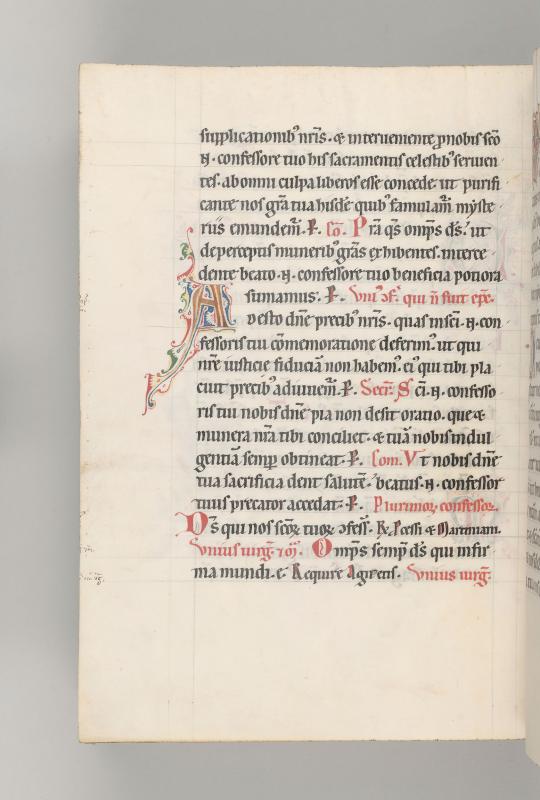 supplicationib' nr̄is. & interueniente p̱nobis sc̄o
.N. confessore tuo his sacramentis celestib' seruien
tes. ab omni culpa liberos esse concede. ut purifi
cante nos gr̄a tua hisdē quib' famulam̄ myste
riis emundem̄. P. Cō. Prā qs̄ omp̄s ds̄. ut
de perceptis munerib' gr̄as exhibentes. interce
dente beato .N. confessore tuo beneficia potiora
sumamus. P. Vni' ɔf. qui n̄ fuit ep̄c.
Adesto dn̄e precib' nr̄is. quas in sc̄i .N. con
fessoris tui cōmemoratione deferim'. ut qui
nr̄e iusticie fiduciā non habem'. ei' qui tibi pla
cuit precib' adiuuem̄. P. Secr̄. Sc̄i .N. confesso
ris tui nobis dn̄e pia non desit oratio. que &
munera nr̄a tibi conciliet. & tuā nobis indul
gentiā semp̱ obtineat. P. Com. Vt nobis dn̄e
tua sacrificia dent salutē. beatus .N. confessor
tuus precator accedat. P. Plurimoꝝ confessoꝝ.
Ds̄ qui nos sc̄oꝝ tuoꝝ ɔfess'. R. Processi & Martiniani.
Vnius uirḡ. & m̄. Omp̄s semp̱ ds̄ qui infir
ma mundi. e. Require Agnetis. Vnius uirḡ.